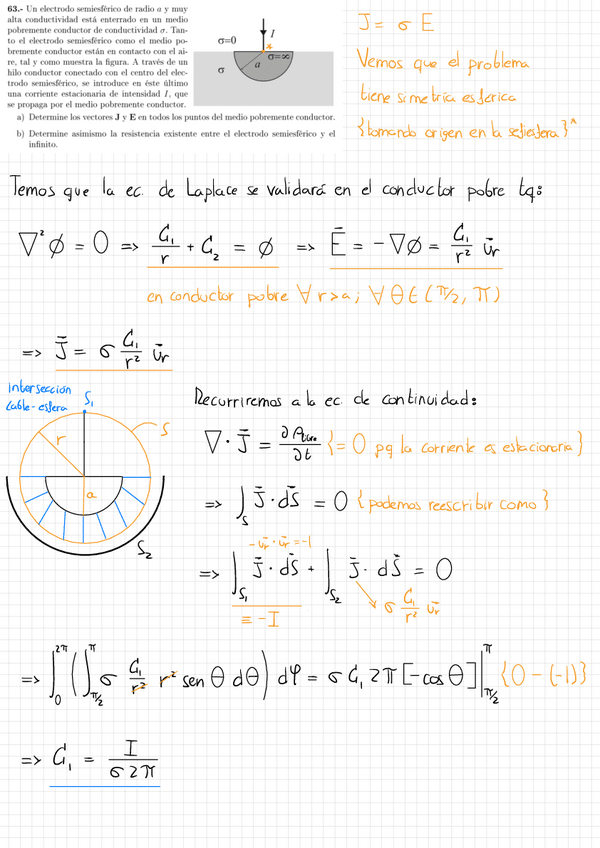 63.- Un electrodo semiesférico de radio a y muy
alta conductividad está enterrado en un medio
pobremente conductor de conductividad σ. Tan-
to el electrodo semiesférico como el medio po-
bremente conductor están en contacto con el ai-
re, tal y como muestra la figura. A través de un
hilo conductor conectado con el centro del elec-
trodo semiesférico, se introduce en éste último
una corriente estacionaria de intensidad I, que
se propaga por el medio pobremente conductor.
a) Determine los vectores J y E en todos los puntos del medio pobremente conductor.
b) Determine asimismo la resistencia existente entre el electrodo semiesférico y el
infinito.
σ=0
I
σ=∞
σ
a
J = σ E
Vemos que el problema
tiene simetría esférica
{tomando origen en la semiesfera}*
Temos que la ec. de Laplace se validará en el conductor pobre tq:
∇²φ = 0 => C₁/r + C₂ = φ => Ē = -∇φ = C₁/r² ūr
en conductor pobre ∀ r>a; ∀ θ ∈ (π/2, π)
=> J̄ = σ C₁/r² ūr
Intersección
Cable-esfera
S₁
r
S
a
S₂
Recurriremos a la ec. de continuidad:
∇ · J̄ = ∂ρlibre/∂t {= 0 pq la corriente es estacionaria}
=> ∫S J̄ · dS̄ = 0 {podemos reescribir como}
-ūr · ūr = -1
=> ∫S₁ J̄ · dS̄ + ∫S₂ J̄ · dS̄ = 0
≡ -I
σ C₁/r² ūr
=> ∫₀^2π (∫π/2^π σ C₁/r² r² sen θ dθ) dφ = σ C₁ 2π [-cos θ]|π/2^π {0 - (-1)}
=> C₁ = I/σ2π